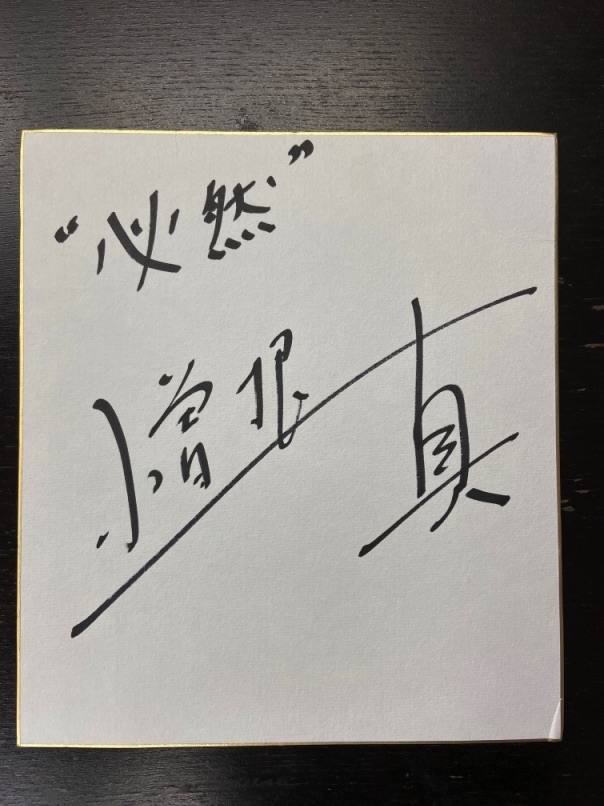 “必然”
小曽根 真